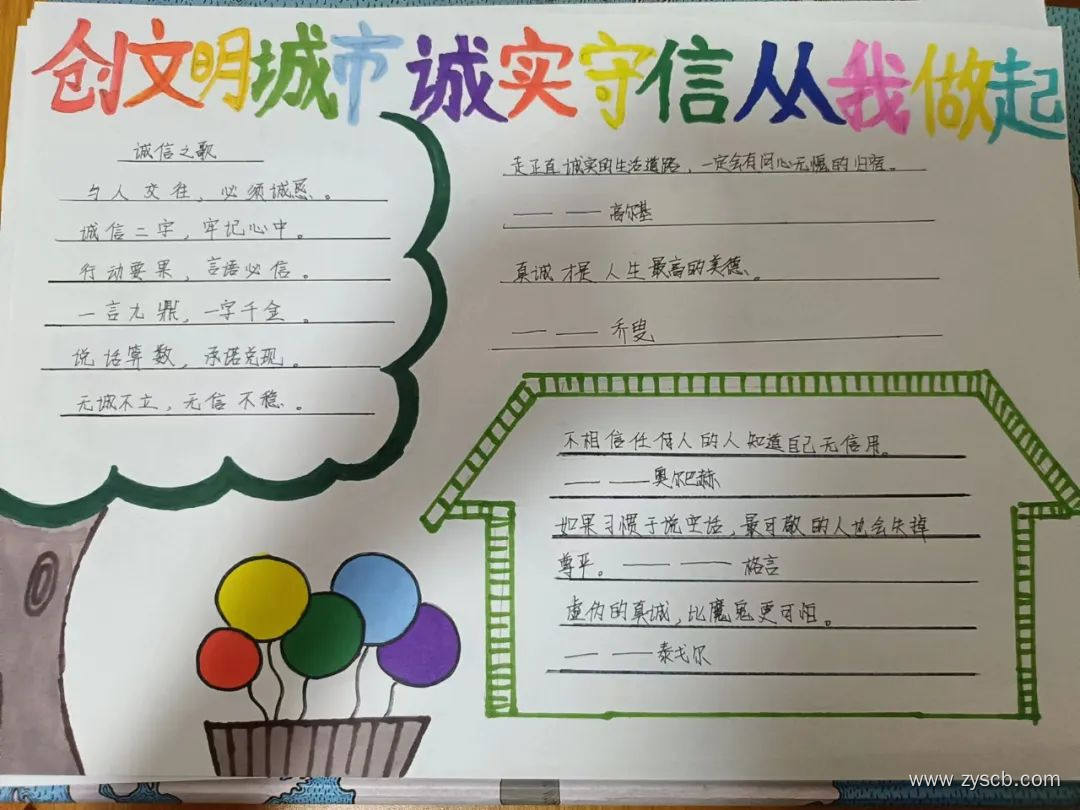 创文明城市 诚实守信 从我做起
诚信之歌
与人交往，必须诚恳。
诚信二字，牢记心中。
行动要果，言语必信。
一言九鼎，一字千金。
说话算数，承诺兑现。
无诚不立，无信不稳。
走正直诚实的生活道路，一定会有问心无愧的归宿。
—— ——高尔基
真诚才是人生最高的美德。
—— ——乔叟
不相信任何人的人知道自己无信用。
—— ——奥尔巴赫
如果习惯于说空话，最可敬的人也会失掉
尊严。—— —— 格言
虚伪的真诚，比魔鬼更可怕。
—— ——泰戈尔
www.zyscb.com